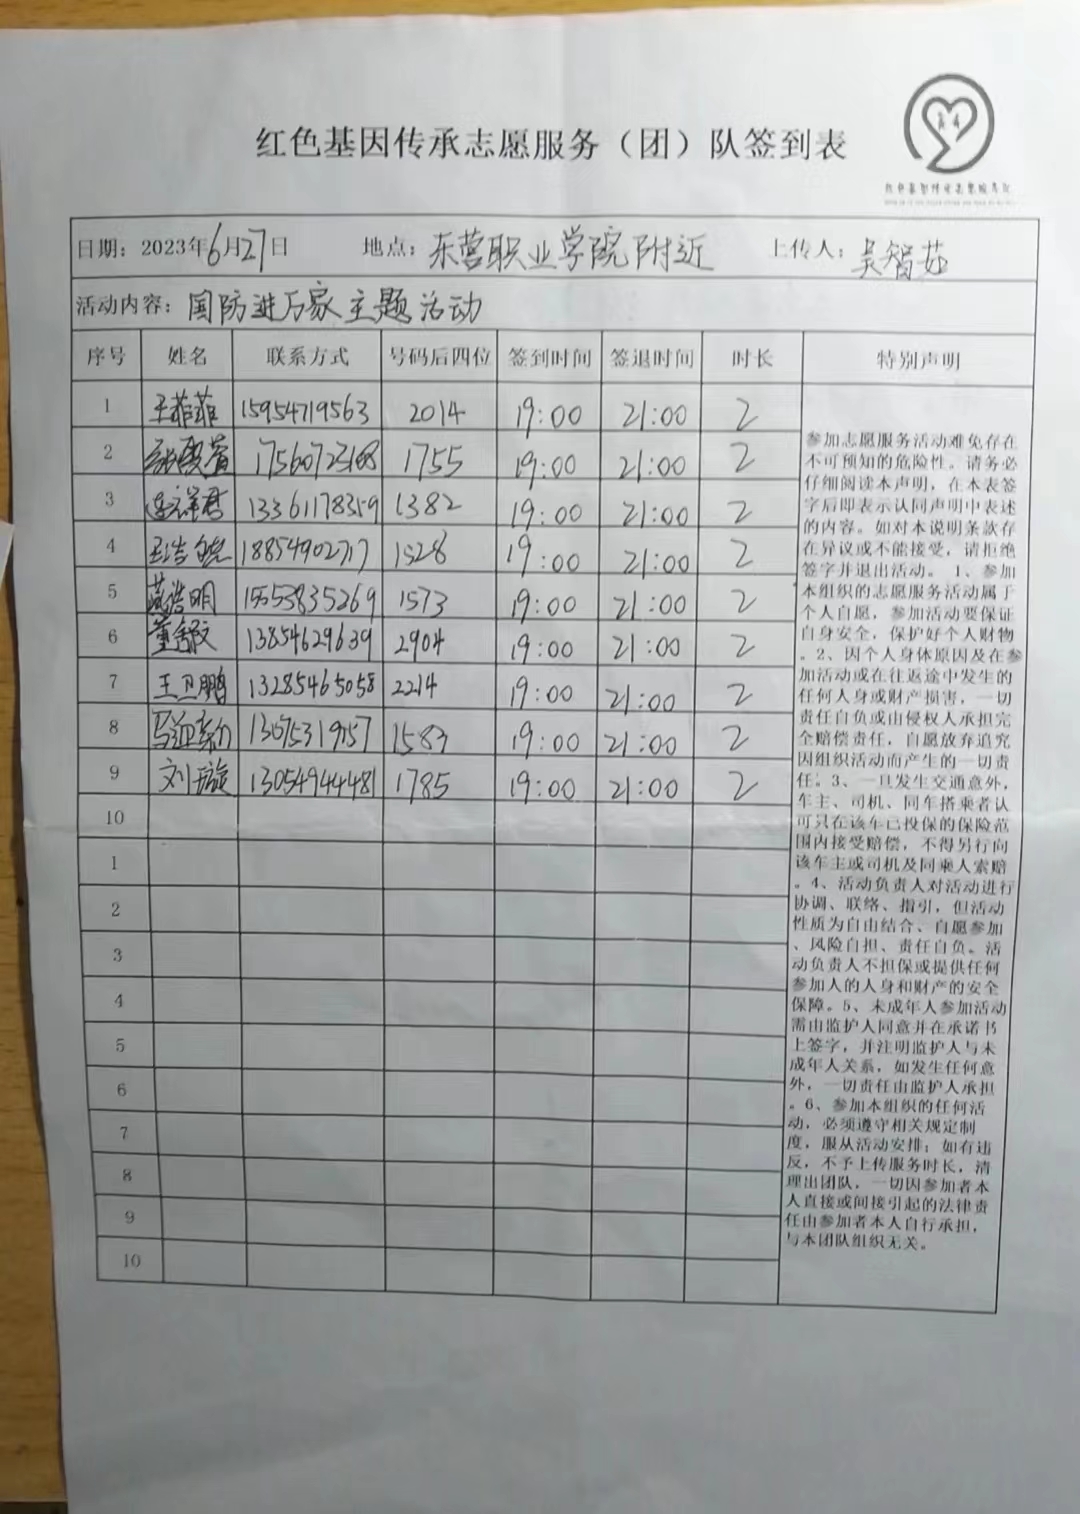 红色基因传承志愿服务（团）队签到表
日期：2023年6月27日 地点：东营职业学院附近 上传人：吴智茹
活动内容：国防进万家主题活动
序号 姓名 联系方式 号码后四位 签到时间 签退时间 时长 特别声明
1 王菲菲 15954719563 2014 19:00 21:00 2
2 1755 19:00 21:00 2
3 13361178359 1382 19:00 21:00 2
4 18854902717 1528 19:00 21:00 2
5 15553835269 1573 19:00 21:00 2
6 13854629639 2904 19:00 21:00 2
7 王卫鹏 13285465058 2214 19:00 21:00 2
8 1583 19:00 21:00 2
9 刘璇 13054944481 1785 19:00 21:00 2
10
1
2
3
4
5
6
7
8
9
10
参加志愿服务活动难免存在
不可预知的危险性。请务必
仔细阅读本声明，在本表签
字后即表示认同声明中表述
的内容。如对本说明条款存
在异议或不能接受，请拒绝
签字并退出活动。 1、参加
本组织的志愿服务活动属于
个人自愿，参加活动要保证
自身安全，保护好个人财物
。2、因个人身体原因及在参
加活动或在往返途中发生的
任何人身或财产损害，一切
责任自负或由侵权人承担完
全赔偿责任，自愿放弃追究
因组织活动而产生的一切责
任。3、一旦发生交通意外，
车主、司机、同车搭乘者认
可只在该车已投保的保险范
围内接受赔偿，不得另行向
该车主或司机及同乘人索赔
。4、活动负责人对活动进行
协调、联络、指引，但活动
性质为自由结合、自愿参加
、风险自担、责任自负。活
动负责人不担保或提供任何
参加人的人身和财产的安全
保障。5、未成年人参加活动
需由监护人同意并在承诺书
上签字，并注明监护人与未
成年人关系，如发生任何意
外，一切责任由监护人承担
。6、参加本组织的任何活
动，必须遵守相关规定制
度，服从活动安排；如有违
反，不予上传服务时长，清
理出团队，一切因参加者本
人直接或间接引起的法律责
任由参加者本人自行承担，
与本团队组织无关。